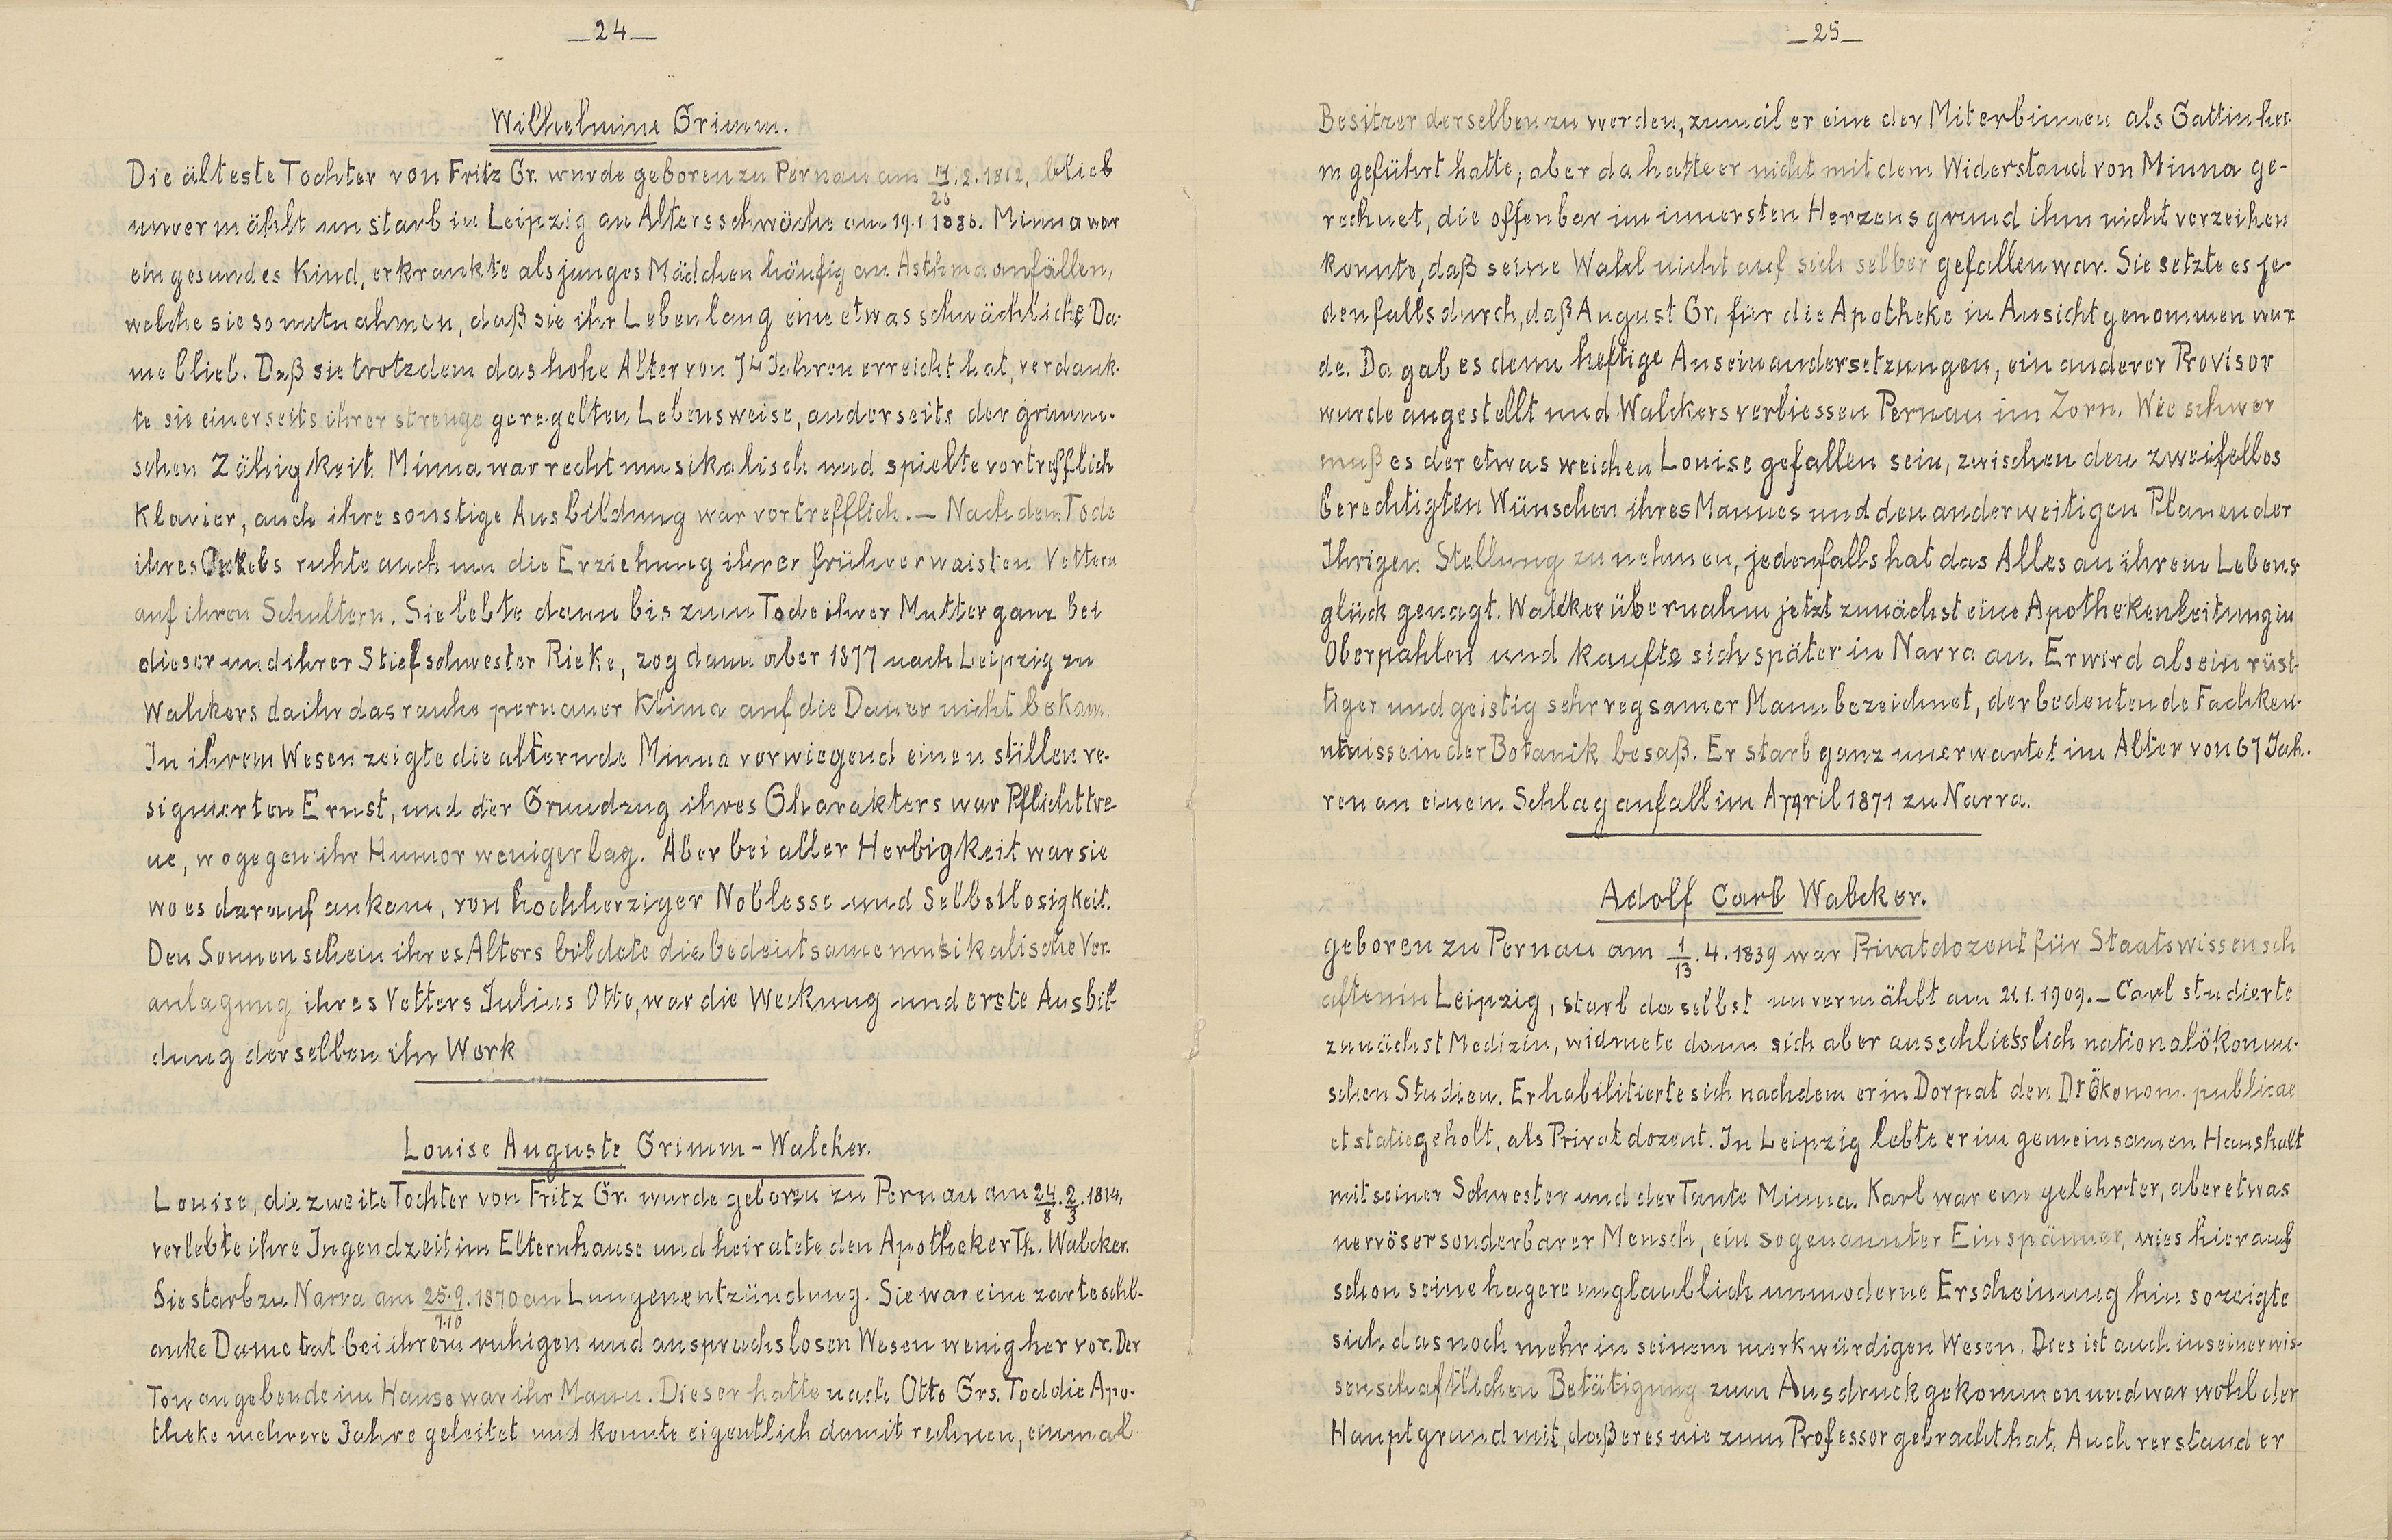 _24_
Wilhelmine Grimm.
Die älteste Tochter von Fritz Gr. wurde geboren zu Pernau am 14/26.2.1812, blieb
unvermählt un starb in Leipzig an Altersschwäche am 19.1.1886. Minna war
ein gesundes Kind, erkrankte als junges Mädchen häufig an Asthmaanfällen,
welche sie so metnahmen, daß sie ihr Lebenlang eine etwas schwächliche Da-
me blieb. Daß sie trotzdem das hohe Alter von 74 Jahren erreicht hat, verdank-
te sie einerseits ihrer strenge geregelten Lebensweise, anderseits der grimm-
schen Zähigkeit. Minna war recht musikalisch und spielte vortrefflich
Klavier, auch ihre sonstige Ausbildung war vortrefflich. — Nach dem Tode
ihres Onkels ruhte auch nu die Erziehung ihrer frühverwaisten Vettern
auf ihren Schultern. Sie lebte dann bis zum Tode ihrer Mutter ganz bei
dieser und ihrer Stiefschwester Rieke, zog dann aber 1877 nach Leipzig zu
Walckers da ihr das rauhe pernauer Klima auf die Dauer nicht bekam.
In ihrem Wesen zeigte die alternde Minna vorwiegend einen stillen re-
signierten Ernst, und der Grundzug ihres Charakters war Pflichttre-
ue, wogegen ihr Humor weniger lag. Aber bei aller Herbigkeit war sie
wo es darauf ankam, von hochherziger Noblesse und Selbstlosigkeit.
Den Sonnenschein ihres Alters bildete die bedeutsame musikalische Ver-
anlagung ihres Vetters Julius Otto, war die Weckung und erste Ausbil-
dung derselben ihr Werk
Louise Auguste Grimm-Walcker.
Louise, die zweite Tochter von Fritz Gr. wurde geboren zu Pernau am 24/8.2/3.1814,
verlebte ihre Jugendzeit im Elternhause und heiratete den Apotheker Th. Walcker.
Sie starb zu Narva am 25.9/7.10.1870 an Lungenentzündung. Sie war eine zarte schl-
anke Dame trat bei ihrem ruhigen und anspruchslosen Wesen wenig hervor. Der
Ton angebende im Hause war ihr Mann. Dieser hatte nach Otto Grs. Tod die Apo-
theke mehrere Jahre geleitet und konnte eigentlich damit rechnen, einmal
_25_
Besitzer derselben zu werden, zumal er eine der Miterbinnen als Gattin hei-
m geführt hatte, aber da hatte er nicht mit dem Widerstand von Minna ge-
rechnet, die offenbar im innersten Herzensgrund ihm nicht verzeihen
konnte, daß seine Wahl nicht auf sich selber gefallen war. Sie setzte es je-
denfalls durch, daß August Gr. für die Apotheke in Ansicht genommen wur
de. Da gab es denn heftige Auseinandersetzungen, ein anderer Provisor
wurde angestellt und Walckers verliessen Pernau im Zorn. Wie schwer
muß es der etwas weichen Louise gefallen sein, zwischen den zweifellos
berechtigten Wünschen ihres Mannes und den anderweitigen Planen der
Ihrigen Stellung zu nehmen, jedenfalls hat das Alles an ihrem Lebens-
glück genagt. Walcker übernahm jetzt zunächst eine Apothekenleitung in
Oberpahlen und kaufte sich später in Narva an. Er wird als ein rüst-
tiger und geistig sehr regsamer Mann bezeichnet, der bedeutende Fachken-
ntnisse in der Botanik besaß. Er starb ganz unerwartet im Alter von 67 Jah-
ren an einem Schlaganfall im April 1871 zu Narva.
Adolf Carl Walcker.
geboren zu Pernau am 1/13.4.1839 war Privatdozent für Staatswissensch
aften in Leipzig, starb daselbst unvermählt am 21.1.1909. — Carl studierte
zunächst Medizin, widmete dann sich aber ausschliesslich nationalökonomi-
schen Studien. Er habilitierte sich nachdem er in Dorpat den Dr Ökonom. publicae
et statiegeholt, als Privatdozent. In Leipzig lebte er im gemeinsamen Haushalt
mit seiner Schwester und der Tante Minna. Karl war ein gelehrter, aber etwas
nervöser sonderbarer Mensch, ein sogenannter Einspänner, wies hierauf
schon seine hagere unglaublich unmoderne Erscheinung hin so zeigte
sich das noch mehr in seinem merkwürdigen Wesen. Dies ist auch in seiner wis-
senschaftlichen Betätigung zum Ausdruck gekommen und war wohl der
Hauptgrund mit, daß er es nie zum Professor gebracht hat. Auch verstand er